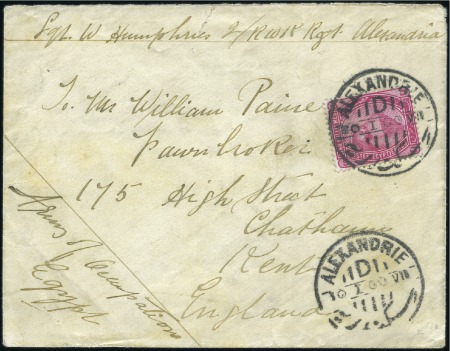 Sgt. W. Humphries 2/R W K Rgt. Alexandria
To Mr William Paine
Pawnbroker
175 High Street
Chatham
Kent
England
Army of Occupation
Egypt
ALEXANDRIE
ALEXANDRIE